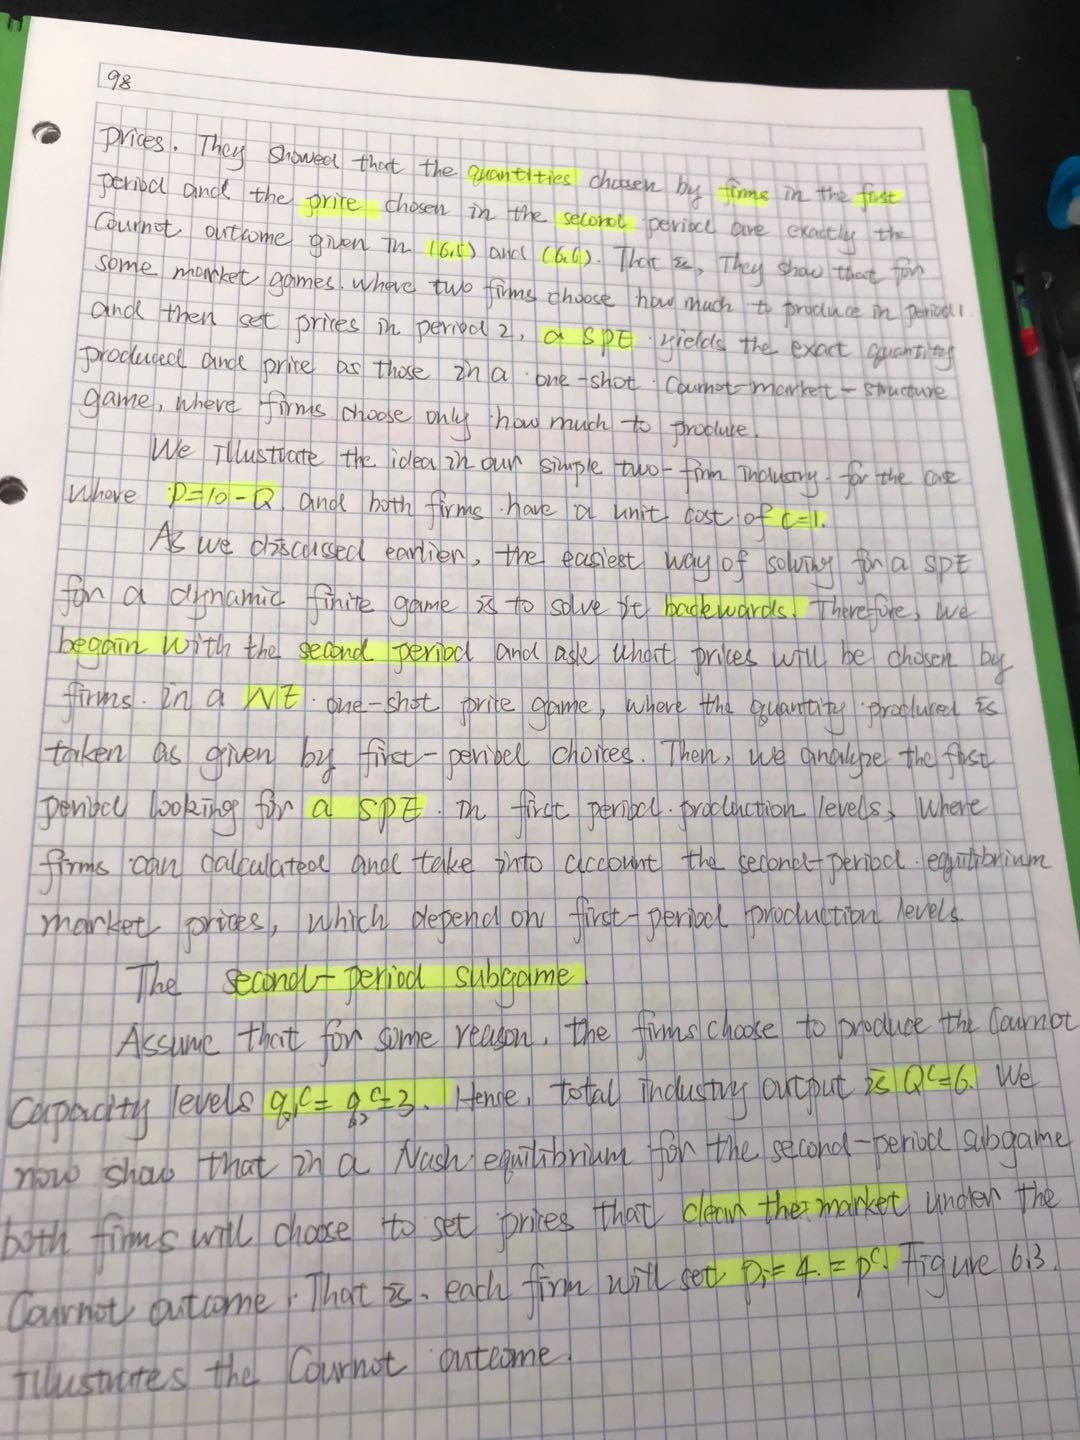 98
prices. They showed that the quantities chosen by firms in the first
period and the price chosen in the second period are exactly the
Cournot outcome given in (6.5) and (6.6). That is, They show that for
some market games. where two firms choose how much to produce in period 1.
and then set prices in period 2, a SPE yields the exact quantity
produced and price as those in a one-shot Cournot-market-structure
game, where firms choose only how much to produce.
We Illustrate the idea in our simple two-firm industry for the case
where P=10-Q. and both firms have a unit cost of c=1.
As we discussed earlier, the easiest way of solving for a SPE
for a dynamic finite game is to solve it backwards. Therefore, we
begain with the second period and ask what prices will be chosen by
firms. in a NE one-shot price game, where the quantity produced is
taken as given by first-period choices. Then, we analyze the first
period looking for a SPE in first period production levels, where
firms can calculated and take into account the second-period equilibrium
market prices, which depend on first-period production levels.
The second-period subgame.
Assume that for some reason, the firms choose to produce the Cournot
Capacity levels q₁ᶜ = q₂ᶜ=3. Hence, total industry output is Qᶜ=6. We
now show that in a Nash equilibrium for the second-period subgame
both firms will choose to set prices that clear the market under the
Cournot outcome. That is, each firm will set pᵢ = 4. = pᶜ. Figure 6.3.
Illustrates the Cournot outcome.